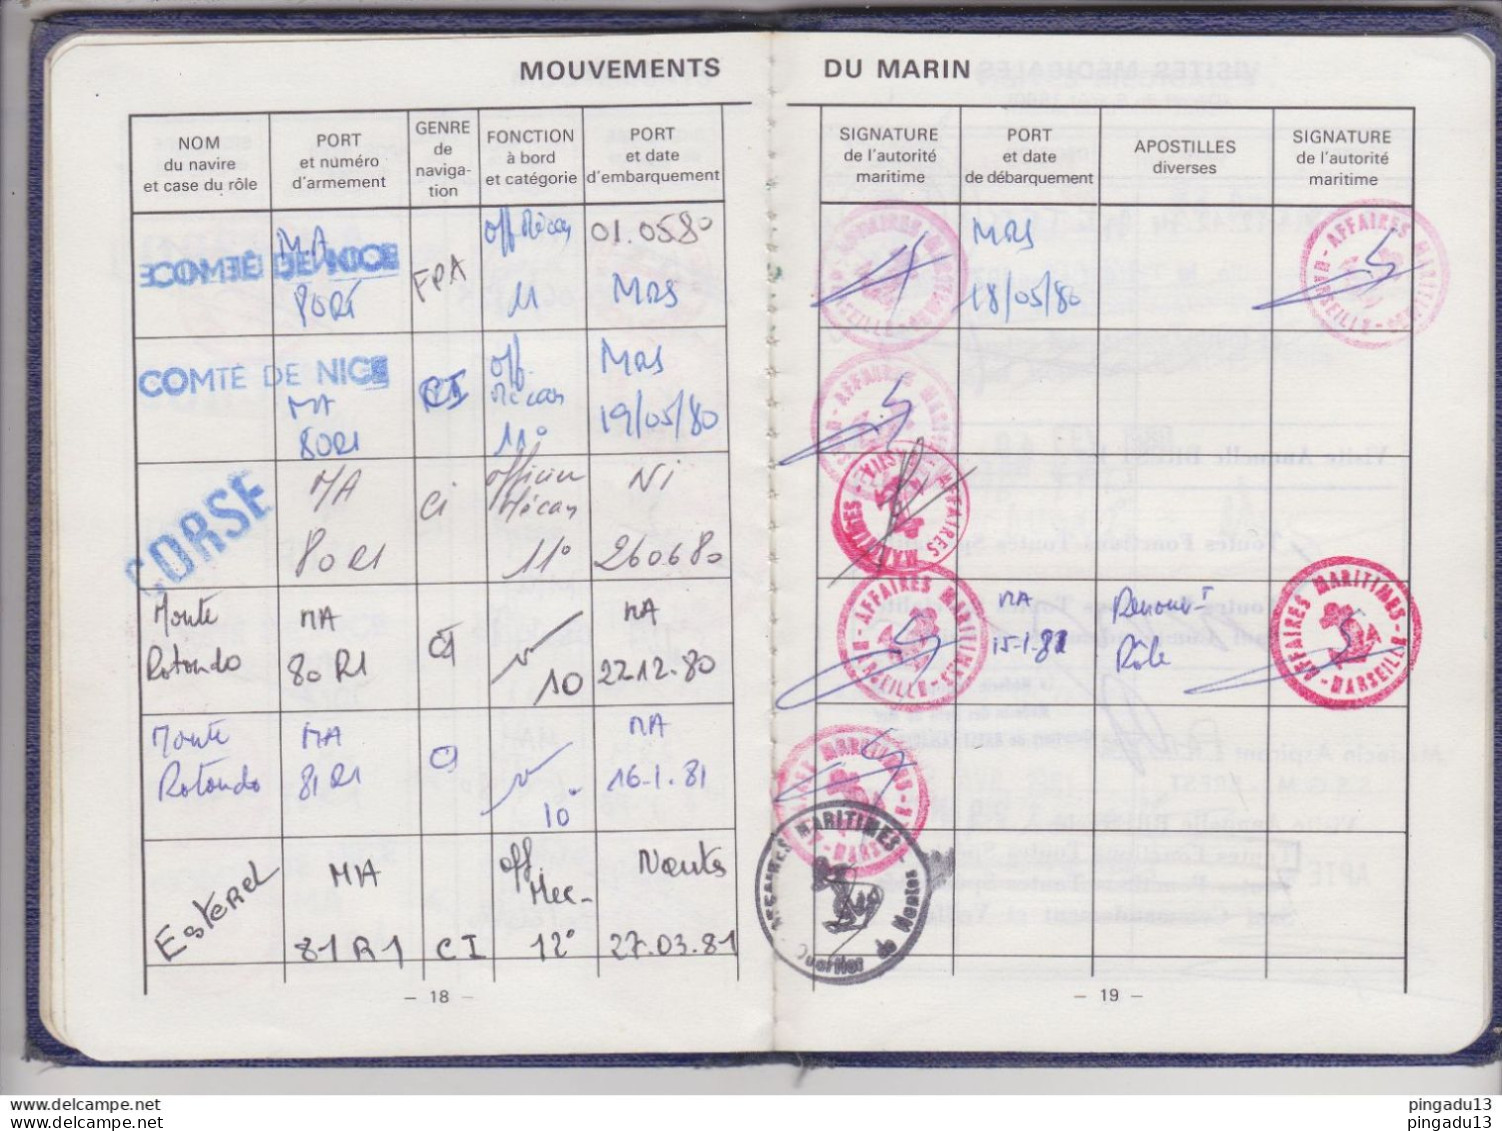 MOUVEMENTS DU MARIN
NOM
du navire
et case du rôle
PORT
et numéro
d'armement
GENRE
de
naviga-
tion
FONCTION
à bord
et catégorie
PORT
et date
d'embarquement
SIGNATURE
de l'autorité
maritime
PORT
et date
de débarquement
APOSTILLES
diverses
SIGNATURE
de l'autorité
maritime
COMTÉ DE NICE
MA
80R1
FPA
off Mécan
11
01.05.80
MRS
MRS
18/05/80
COMTÉ DE NICE
MA
80R1
CI
off.
Mécan
11°
MRS
19/05/80
CORSE
MA
80R1
Ci
officier
Mécan
11°
Ni
260680
Monte
Rotondo
MA
80R1
CI
10
MA
22.12.80
MA
15-1-81
Renouv-t
Rôle
Monte
Rotondo
MA
81R1
CI
10°
MA
16-1.81
Esterel
MA
81R1
CI
off.
Mec-
12°
Nantes
27.03.81
AFFAIRES MARITIMES
MARSEILLE
AFFAIRES MARITIMES
Quartier de Nantes
- 18 -
- 19 -
pingadu13
pingadu13
pingadu13
pingadu13